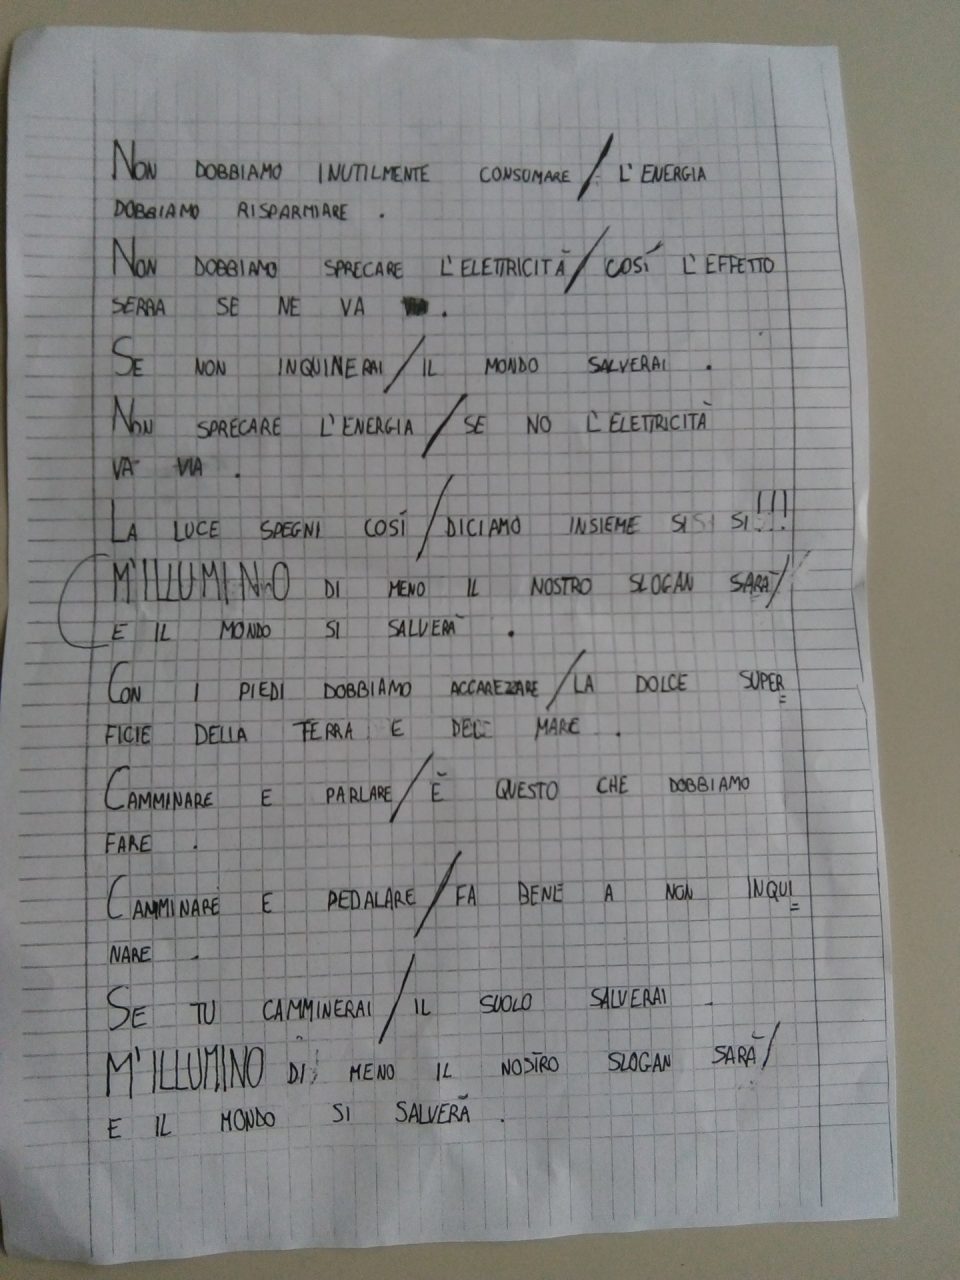 NON DOBBIAMO INUTILMENTE CONSUMARE / L'ENERGIA
DOBBIAMO RISPARMIARE .
NON DOBBIAMO SPRECARE L'ELETTRICITÀ / COSÍ L'EFFETTO
SERRA SE NE VA .
SE NON INQUINERAI / IL MONDO SALVERAI .
NON SPRECARE L'ENERGIA / SE NO L'ELETTRICITÀ
VA VIA .
LA LUCE SPEGNI COSÍ / DICIAMO INSIEME SI SI SI!!!
M'ILLUMINO DI MENO IL NOSTRO SLOGAN SARÀ /
E IL MONDO SI SALVERÀ .
CON I PIEDI DOBBIAMO ACCAREZZARE / LA DOLCE SUPER=
FICIE DELLA TERRA E DEL MARE .
CAMMINARE E PARLARE / È QUESTO CHE DOBBIAMO
FARE .
CAMMINARE E PEDALARE / FA BENE A NON INQUI=
NARE .
SE TU CAMMINERAI / IL SUOLO SALVERAI .
M'ILLUMINO DI MENO IL NOSTRO SLOGAN SARÀ /
E IL MONDO SI SALVERÀ .